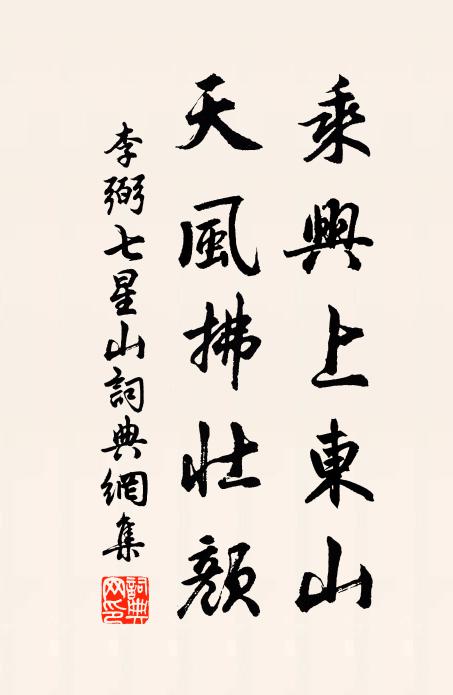 乘興上東山
天風拂壯顏
李弼七星山詞典網集
詞典網印